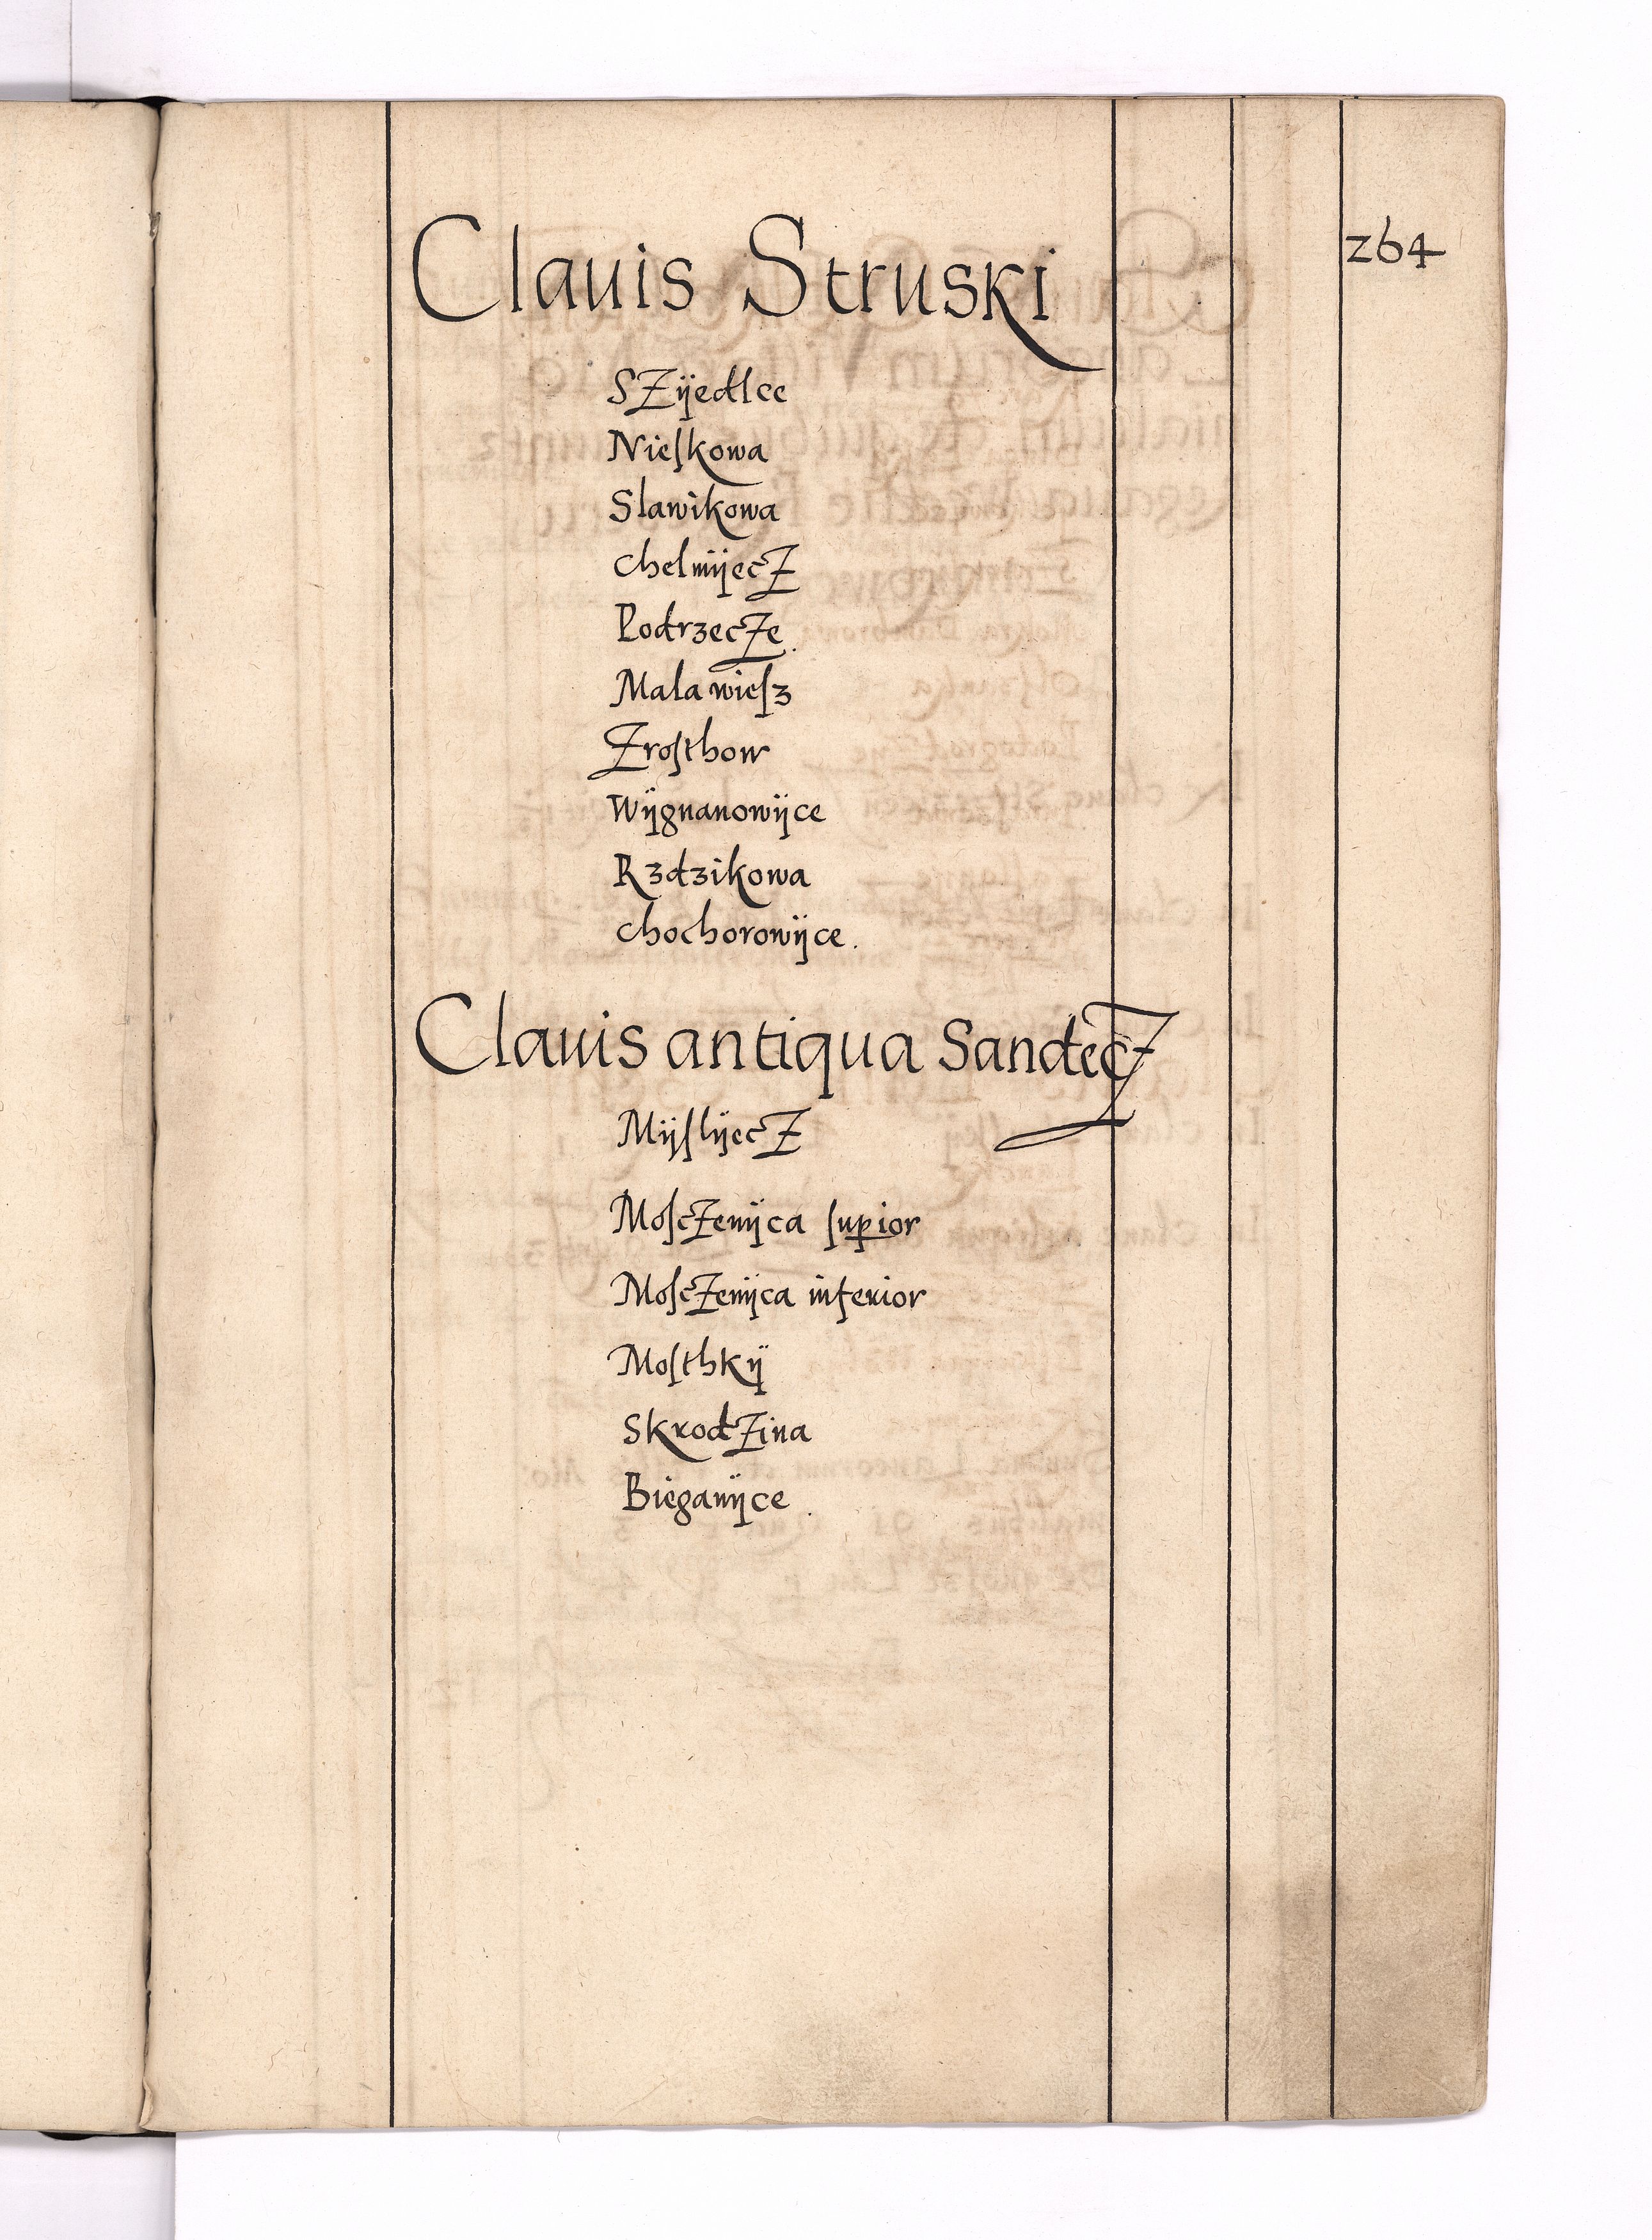 264
Clauis Struski
SZÿedlce
Nieſkowa
Slawikowa
ChelmÿecZ
PodrzecZe
Mala wieſz
Zroſthow
Wÿgnanowÿce
Rzdzikowa
Chochorowÿce.
Clauis antiqua SandecZ
MÿſlÿecZ
MoſcZenÿca ſuꝑior
MoſcZenÿca inferior
Moſthkÿ
SkrodZina
Bieganÿce